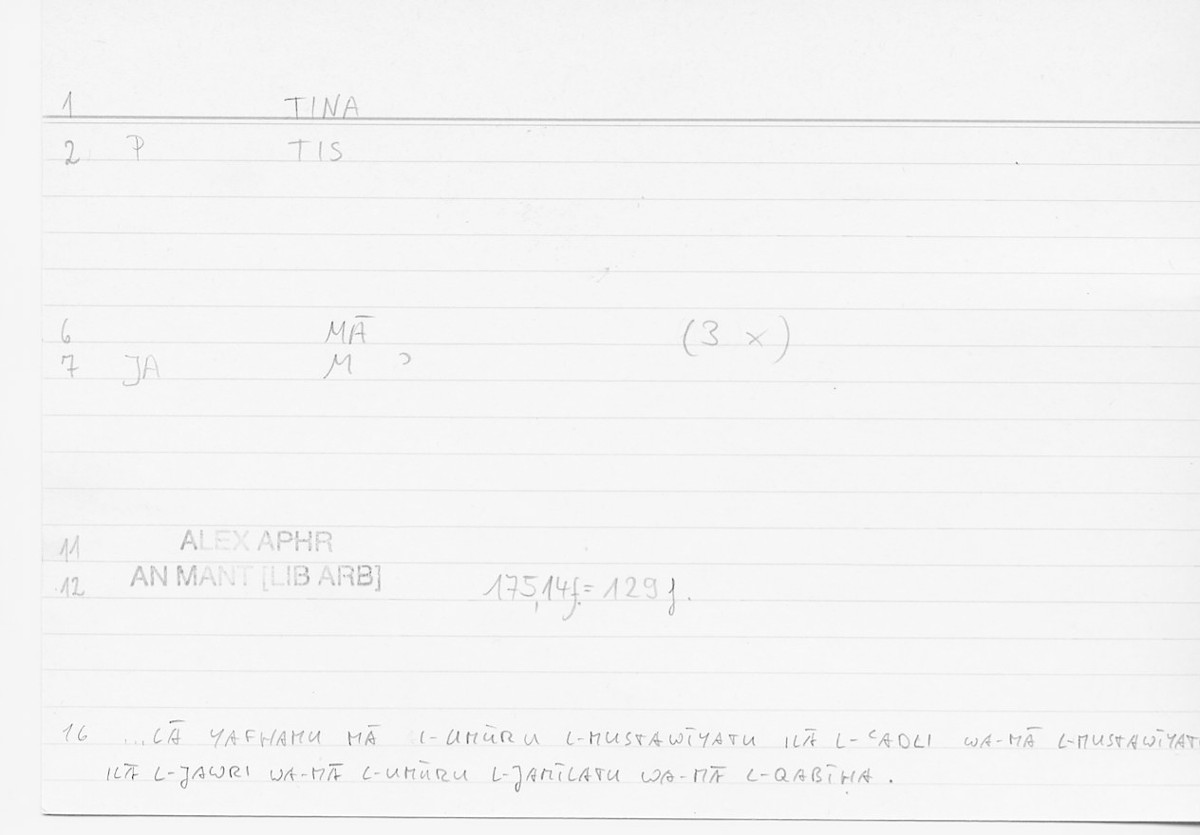 1 TINA
2 P TIS
6 MĀ (3 x)
7 JA M ʾ
11 ALEX APHR
12 AN MANT [LIB ARB] 175,14f.= 129 f.
16 ...LĀ YAFHAMU MĀ L-UMŪRU L-MUSTAWĪYATU ILĀ L-ʿADLI WA-MĀ L-MUSTAWĪYAT
ILĀ L-JAWRI WA-MĀ L-UMŪRU L-JAMĪLATU WA-MĀ L-QABĪḤA.